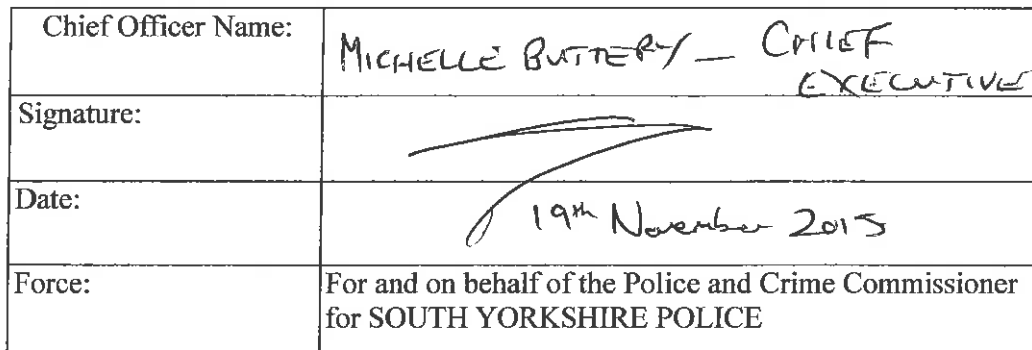 Chief Officer Name:
MICHELLE BUTTERY – CHIEF
EXECUTIVE
Signature:
Date:
19th November 2015
Force:
For and on behalf of the Police and Crime Commissioner
for SOUTH YORKSHIRE POLICE